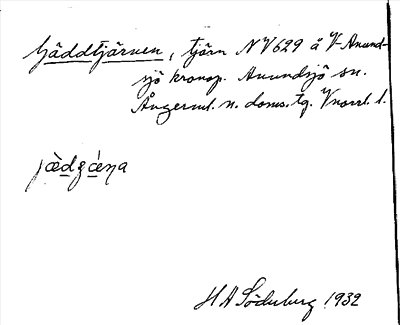 Gäddtjärnen, tjärn NV 629 å V-Anund-
sjö kronop. Anundsjö sn.
Ångerml. n. doms. tg. Vnorrl. l.
jæ̀dȥǽŋa
H A Söderberg 1932